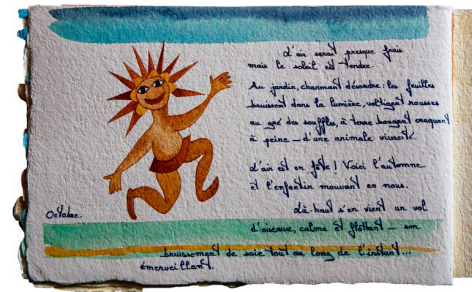 L'air serait presque frais
mais le soleil est tendre.
Au jardin, charmant désordre : les feuilles
bruissent dans la lumière, voltigent rousses
au gré des souffles, à terre bougent craquant
à peine – d'une animale vivacité.
L'air est en fête ! Voici l'automne
et l'enfantin mouvant en nous.
Là-haut s'en vient un vol
d'oiseaux, calme et flottant – son
Octobre.
bruissement de soie tout au long de l'instant...
émerveillant.